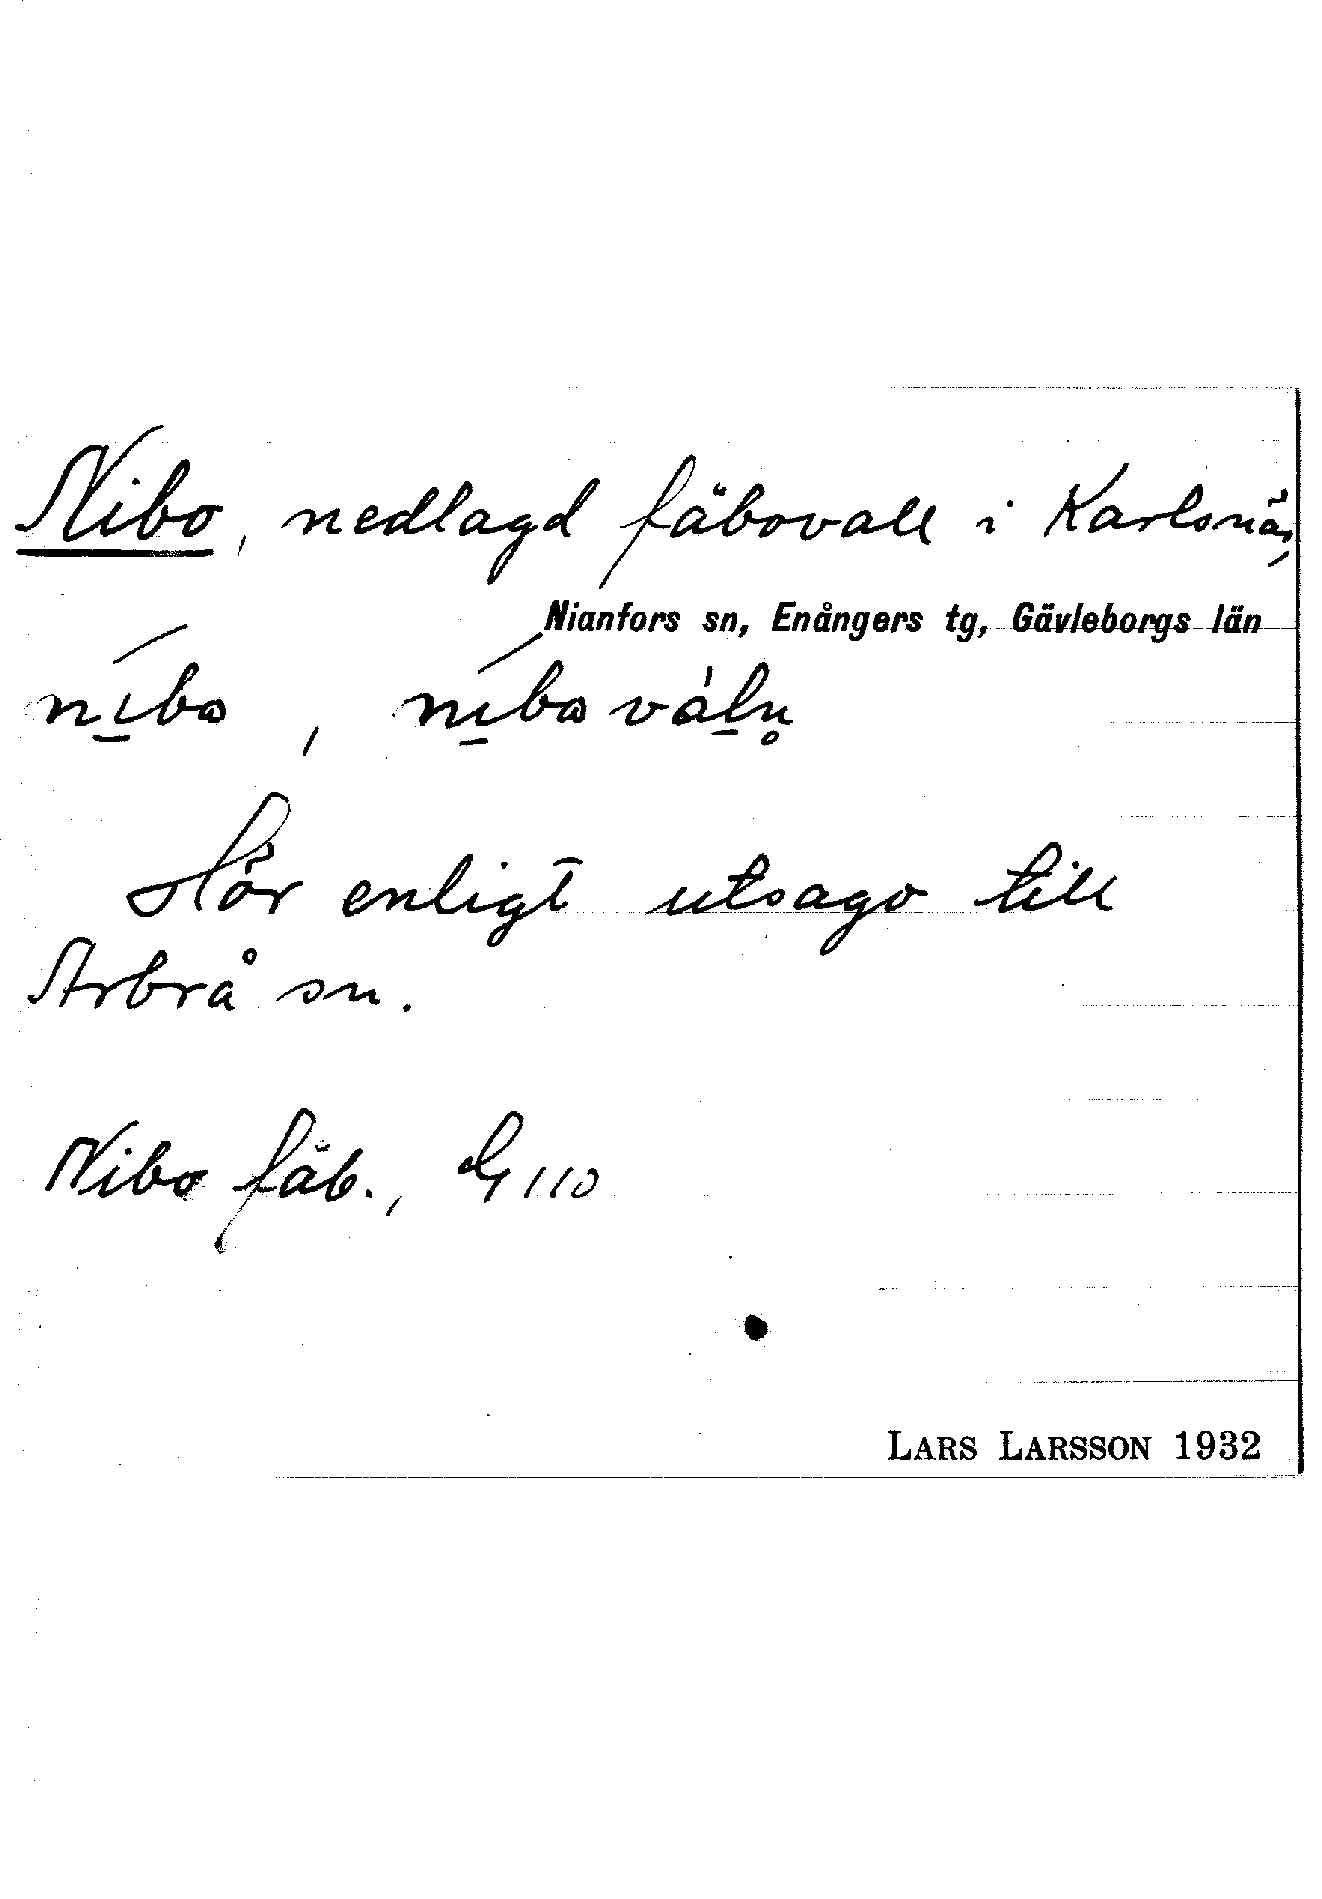 Nibo, nedlagd fäbovall i Karlsnäs,
Nianfors sn, Enångers tg, Gävleborgs län
Hör enligt utsago till
Arbrå sn.
Nibo fäb., G 110
LARS LARSSON 1932